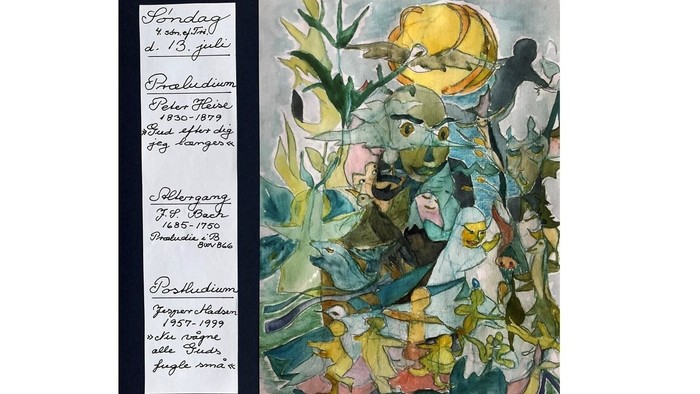 Søndag
4. søn. ef. Tri.
d. 13. juli
Præludium
Peter Heise
1830-1879
»Gud efter dig
jeg længes«
Altergang
J. S. Bach
1685-1750
Præludie i B
BWV 866
Postludium
Jesper Madsen
1957-1999
»Nu vågne
alle Guds
fugle små«